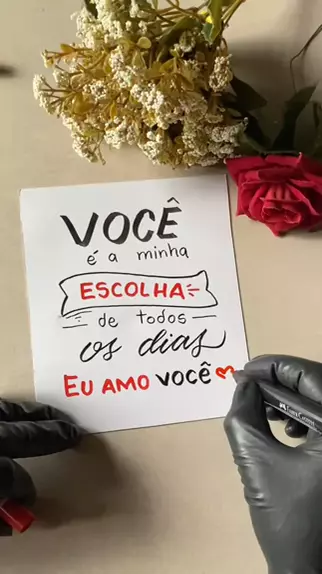 VOCÊ
é a minha
ESCOLHA
de todos
os dias
EU AMO VOCÊ